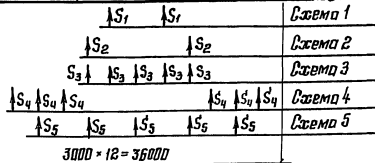 S1 S1 Схема 1
S2 S2 Схема 2
S3 S3 S3 S3 S3 Схема 3
S4 S4 S4 S4 S4 S4 Схема 4
S5 S5 S5 S5 S5 Схема 5
3000 × 12 = 36000